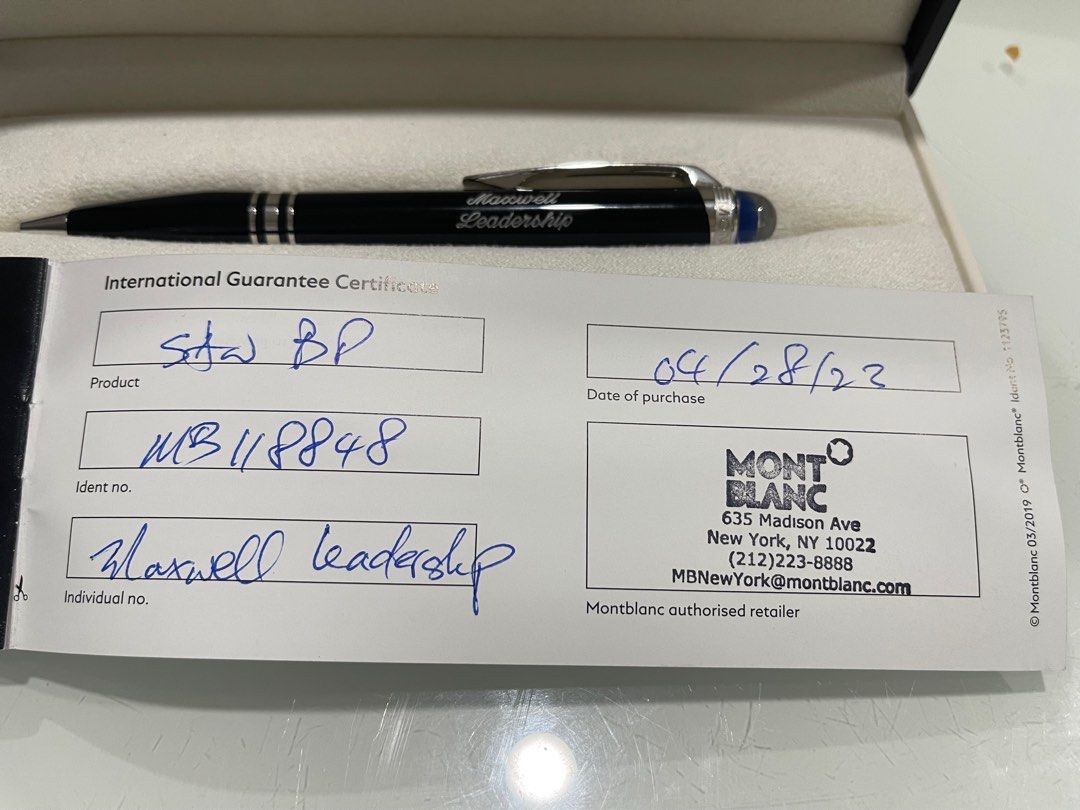 Maxwell
Leadership
International Guarantee Certificate
StW BP
Product
04/28/23
Date of purchase
MB118848
Ident no.
Maxwell Leadership
Individual no.
MONT
BLANC
635 Madison Ave
New York, NY 10022
(212)223-8888
MBNewYork@montblanc.com
Montblanc authorised retailer
© Montblanc 03/2019 O® Montblanc® Ident No. 1123795